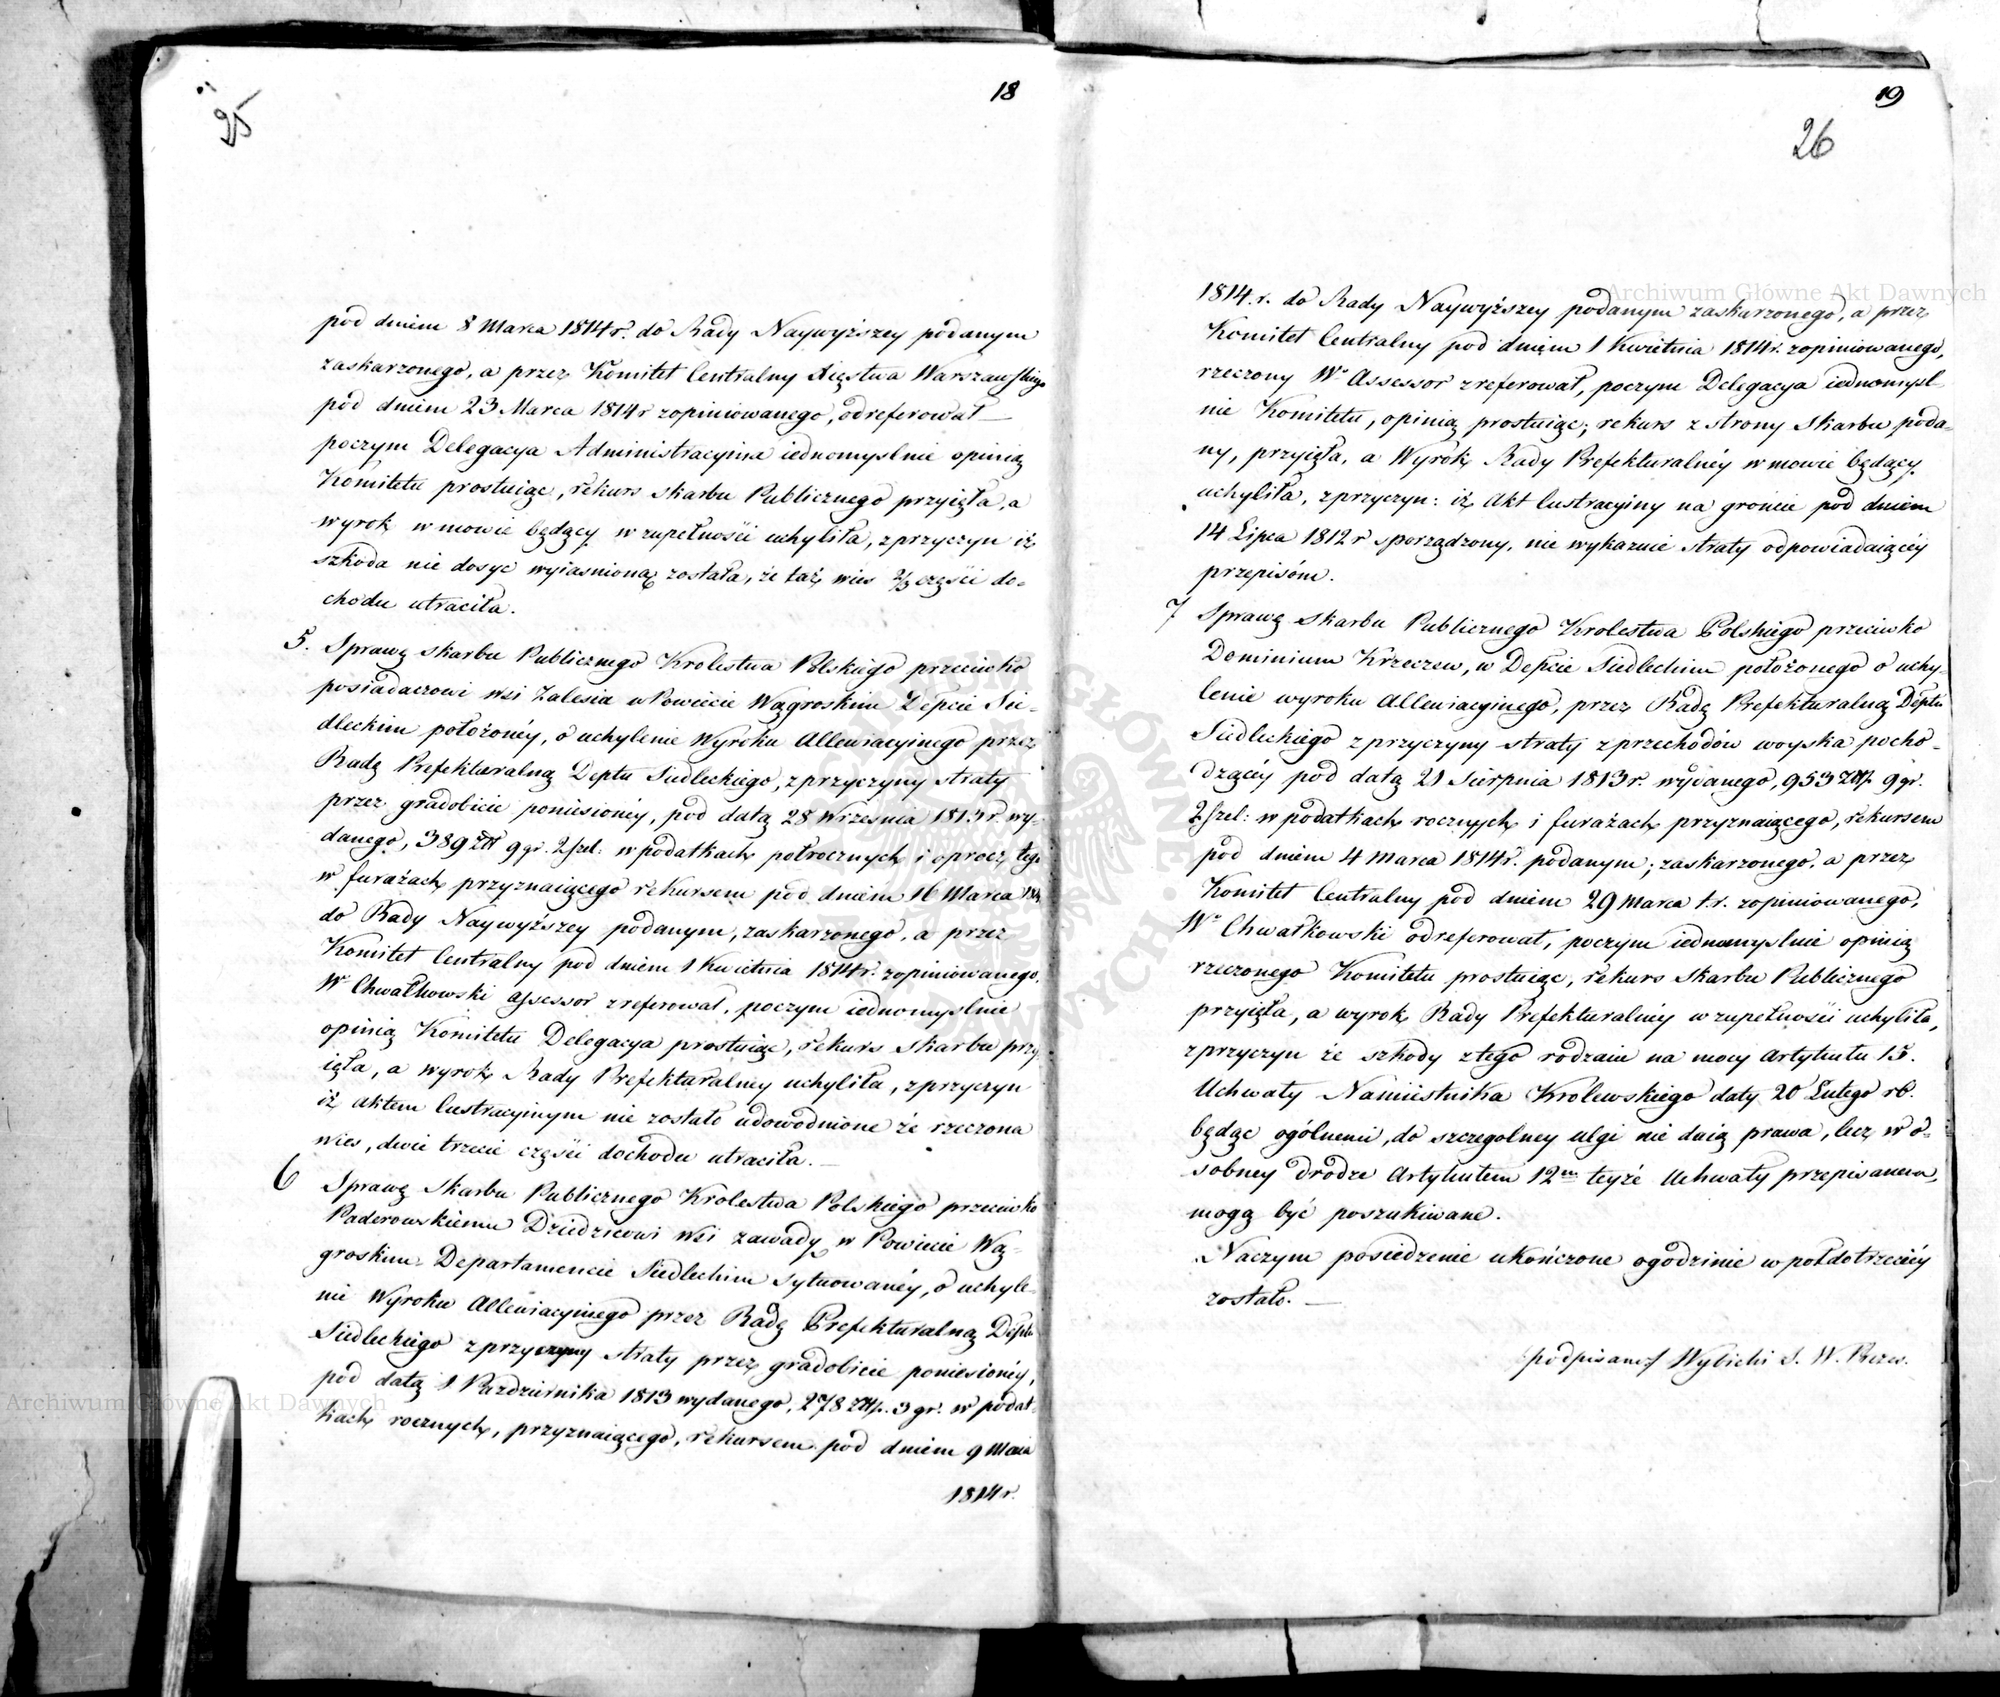 18
25
pod dniem 8 Marca 1814 r. do Rady Naywyższey podanym
zaskarzonego, a przez Komitet Centralny Xięstwa Warszawskiego
pod dniem 23 Marca 1814 r zopiniowanego, odreferował
poczym Delegacya Administracyina iednomyslnie opinią
Komitetu prostuiąc, rekurs skarbu Publicznego przyięła, a
wyrok w mowie będący w zupełności uchyliła, z przyczyn iż
szkoda nie dosyć wyiasnioną została, że taż wies 2/3 części do=
chodu utraciła.
5. Sprawę skarbu Publicznego Krolestwa Polskiego przeciwko
posiadaczowi wsi Zalesia w Powiecie Węgroskim Depcie Sie=
dleckim położonéy, o uchylenie Wyroku Allewiacyinego przez
Radę Prefekturalną Deptu Siedleckiego, z przyczyny straty
przez gradobicie poniesionéy, pod datą 28 Września 1813 r. wy=
danego, 389 Złł 9 gr. 2 szel: w podatkach połrocznych i oprocz tego
w furażach przyznaiącego rekursem pod dniem 16 Marca 1814
do Rady Naywyższey podanym, zaskarzonego, a przez
Komitet Centralny pod dniem 1 Kwietnia 1814 r. zopiniowanego,
Wr Chwałkowski assessor zreferował, poczym iednomyslnie
opinią Komitetu Delegacya prostuiąc, rekurs skarbu przy
ięła, a wyrok Rady Prefekturalney uchyliła, z przyczyn
iż aktem lustracyinym nie zostało udowodnione że rzeczona
wies, dwie trzecie części dochodu utraciła.
6 Sprawę skarbu Publicznego Krolestwa Polskiego przeciwko
Paderowskiemu Dziedzicowi wsi Zawady w Powiecie Wę=
groskim Departamencie Siedleckim sytuowanéy, o uchyle=
nie Wyroku Allewiacyinego przez Radę Prefekturalną Deptu
Siedleckiego z przyczyny straty przez gradobicie poniesionéy,
pod datą 1 Pazdziernika 1813 wydanego, 278 Złł. 3 gr. w podat=
kach rocznych, przyznaiącego, rekursem pod dniem 9 Maia
1814 r.
19
26
1814. r. do Rady Naywyższey podanym zaskarzonego, a przez
Komitet Centralny pod dniem 1 Kwietnia 1814 r. zopiniowanego,
rzeczony Wr Assessor zreferował, poczym Delegacya iednomysl
nie Komitetu, opinią prostuiąc; rekurs z strony skarbu poda=
ny, przyięła, a Wyrok Rady Prefekturalnéy w mowie będący
uchyliła, z przyczyn: iż Akt lustracyiny na gruncie pod dniem
14 Lipca 1812 r sporządzony, nie wykazuie straty odpowiadaiącéy
przepisóm.
7 Sprawę skarbu Publicznego Krolestwa Polskiego przeciwko
Dominium Krzeczew, w Depcie Siedleckim położonego o uchy=
lenie wyroku Allewiacyinego, przez Radę Prefekturalną Deptu
Siedleckiego z przyczyny straty z przechodów woyska pocho=
dzącéy pod datą 21 Sierpnia 1813 r. wydanego, 953 Złł. 9 gr.
2 szel: w podatkach rocznych i furażach przyznaiącego, rekursem
pod dniem 4 Marca 1814 r. podanym; zaskarzonego, a przez
Komitet Centralny pod dniem 29 Marca t. r. zopiniowanego,
Wr Chwałkowski odreferował, poczym iednomyslnie opinią
rzeczonego Komitetu prostuiąc, rekurs skarbu Publicznego
przyięła, a wyrok Rady Prefekturalnéy w zupełności uchyliła,
z przyczyn że szkody z tego rodzaiu na mocy Artykułu 15.
Uchwały Namiestnika Królewskiego daty 20 Lutego rb.
będąc ogólnemi, do szczegolney ulgi nie daią prawa, lecz w o=
sobney drodze Artykułem 12m teyże Uchwały przepisanem,
mogą być poszukiwane.
Naczym posiedzenie ukończone o godzinie w poł do trzeciéy
zostało.
podpisano/ Wybicki S. W. Prezes.
Archiwum Główne Akt Dawnych
Archiwum Główne Akt Dawnych